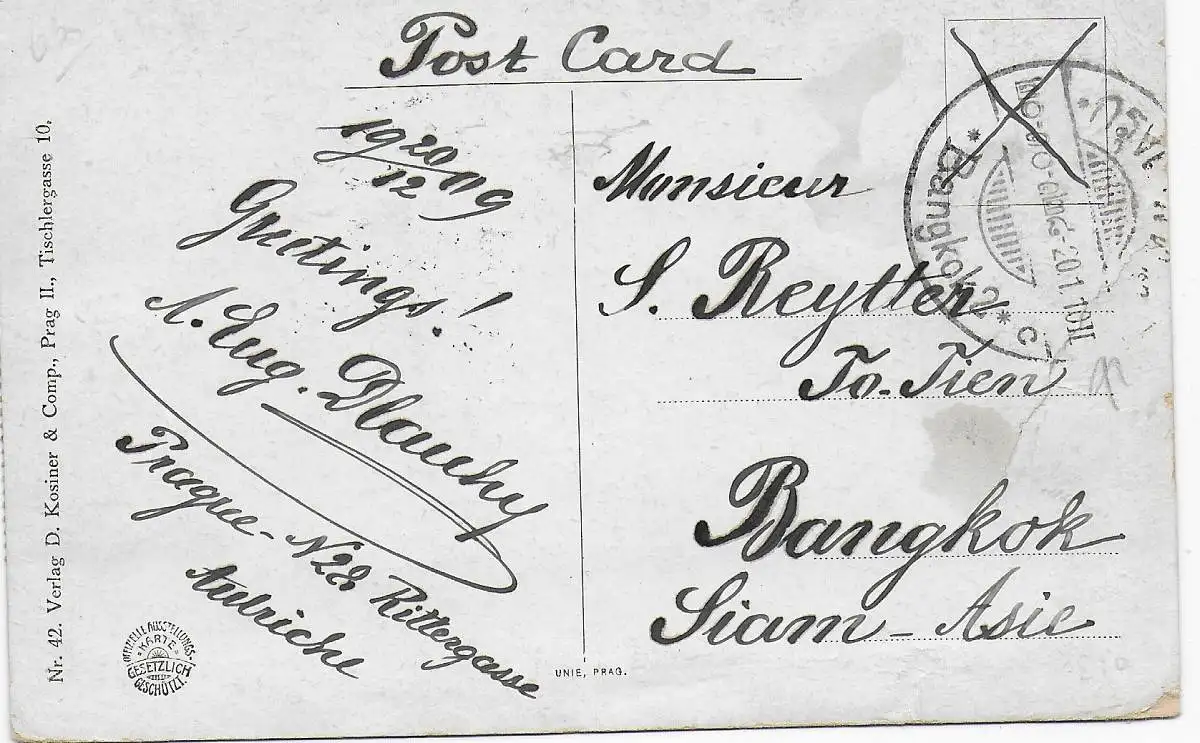 Post Card
19 20/12 09
Greetings!
A. Eug. Dlauhy
Prague - N28 Rittergasse
Autriche
Monsieur
S. Reytter
To-Tien
Bangkok
Siam - Asie
* Bangkok 2 *
Nr. 42. Verlag D. Kosiner & Comp., Prag II., Tischlergasse 10.
OFFIZIELLE AUSSTELLUNGS
KARTE
GESETZLICH
GESCHÜTZT.
UNIE, PRAG.